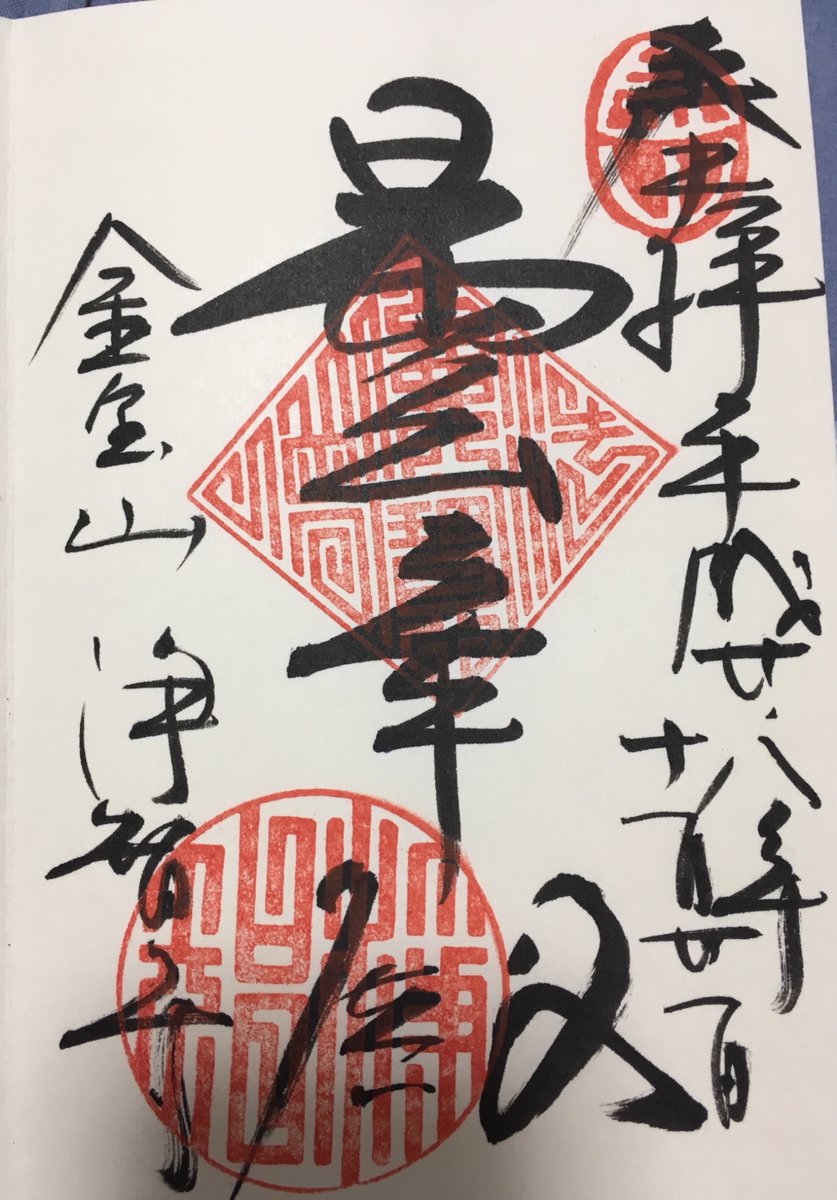 奉拝 平成廿八年
十一月廿一日
曇華殿
金宝山 浄智寺